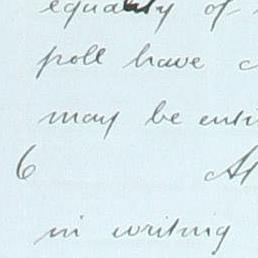 equality of
poll have
may be enti
6 At
in writing